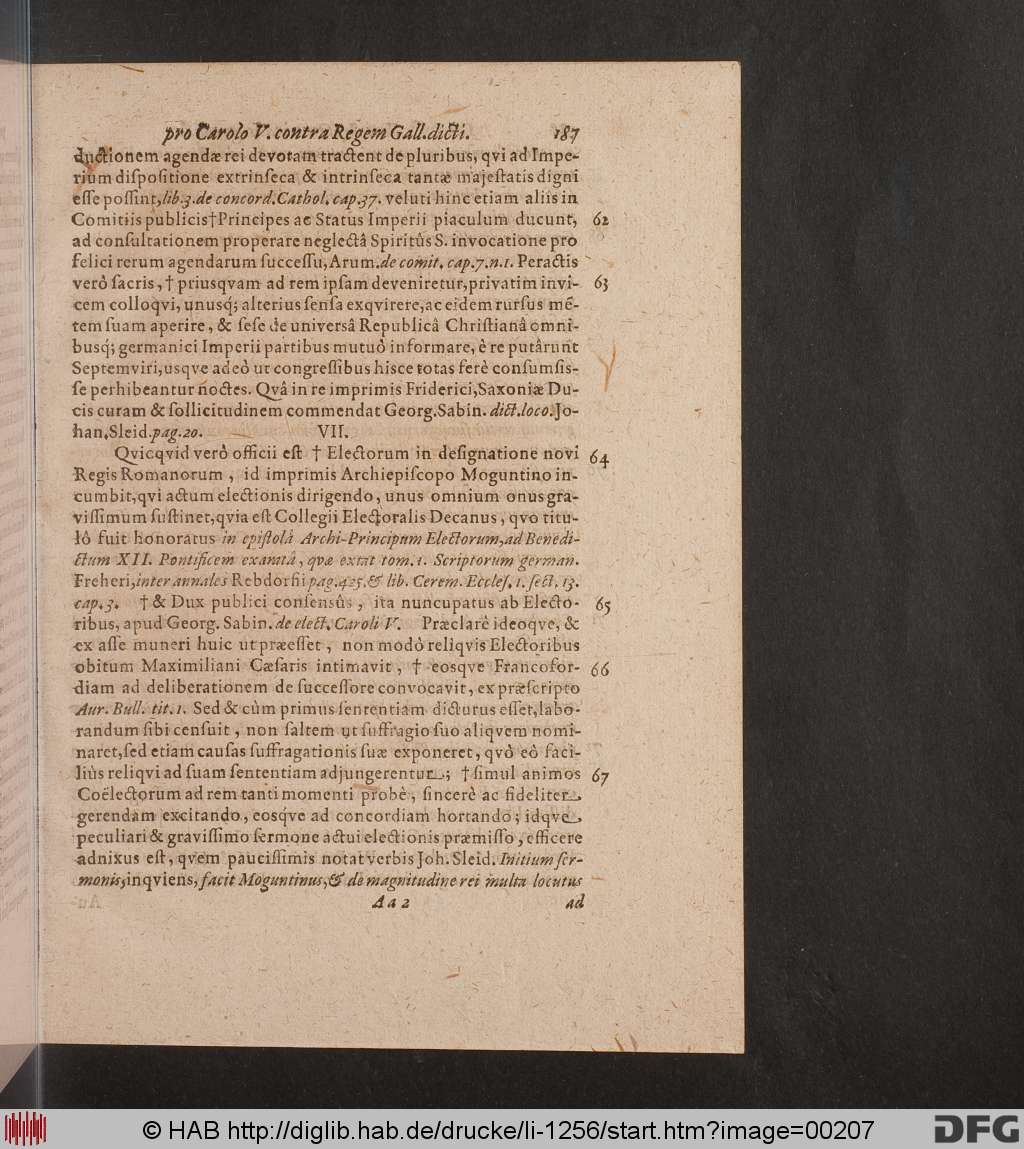 pro Carolo V. contra Regem Gall. dicti. 187
ductionem agendæ rei devotam tractent de pluribus, qvi ad Impe-
rium diſpoſitione extrinſeca & intrinſeca tantæ majeſtatis digni
eſſe poſſint, lib. 3. de concord. Cathol. cap. 37. veluti hinc etiam aliis in
Comitiis publicis † Principes ac Status Imperii piaculum ducunt, 62
ad conſultationem properare neglectâ Spiritûs S. invocatione pro
felici rerum agendarum ſucceſſu, Arum. de comit. cap. 7. n. 1. Peractis
verò ſacris, † priusqvam ad rem ipſam deveniretur, privatim invi- 63
cem colloqvi, unusq́; alterius ſenſa exqvirere, ac eidem rurſus mē-
tem ſuam aperire, & ſeſe de universâ Republicâ Chriſtianâ omni-
busq́; germanici Imperii partibus mutuò informare, è re putârunt
Septemviri, usqve adeò ut congreſſibus hisce totas ferè conſumſis-
ſe perhibeantur noctes. Qvâ in re imprimis Friderici, Saxoniæ Du-
cis curam & ſollicitudinem commendat Georg. Sabin. dict. loco. Jo-
han. Sleid. pag. 20. VII.
Qvicqvid verò officii eſt † Electorum in deſignatione novi 64
Regis Romanorum, id imprimis Archiepiſcopo Moguntino in-
cumbit, qvi actum electionis dirigendo, unus omnium onus gra-
viſſimum ſuſtinet, qvia eſt Collegii Electoralis Decanus, qvo titu-
lô fuit honoratus in epiſtolâ Archi-Principum Electorum, ad Benedi-
ctum XII. Pontificem exaratâ, qvæ extat tom. 1. Scriptorum german.
Freheri, inter annales Rebdorfii pag. 425. & lib. Cerem. Eccleſ. 1. ſect. 13.
cap. 3. † & Dux publici conſensûs, ita nuncupatus ab Electo- 65
ribus, apud Georg. Sabin. de elect. Caroli V. Præclarè ideoqve, &
ex aſſe muneri huic ut præeſſet, non modò reliqvis Electoribus
obitum Maximiliani Cæſaris intimavit, † eosqve Francofor- 66
diam ad deliberationem de ſucceſſore convocavit, ex præſcripto
Aur. Bull. tit. 1. Sed & cùm primus ſententiam dicturus eſſet, labo-
randum ſibi cenſuit, non ſaltem ut ſuffragio ſuo aliqvem nomi-
naret, ſed etiam cauſas ſuffragationis ſuæ exponeret, qvò eò faci-
liùs reliqvi ad ſuam ſententiam adjungerentur; † ſimul animos 67
Coëlectorum ad rem tanti momenti probè, ſincerè ac fideliter
gerendam excitando, eosq́ve ad concordiam hortando; idqve
peculiari & graviſſimo ſermone actui electionis præmiſſo, efficere
adnixus eſt, qvem pauciſſimis notat verbis Joh. Sleid. Initium ſer-
monis, inqviens, facit Moguntinus, & de magnitudine rei multa locutus
Aa 2 ad
© HAB http://diglib.hab.de/drucke/li-1256/start.htm?image=00207
DFG